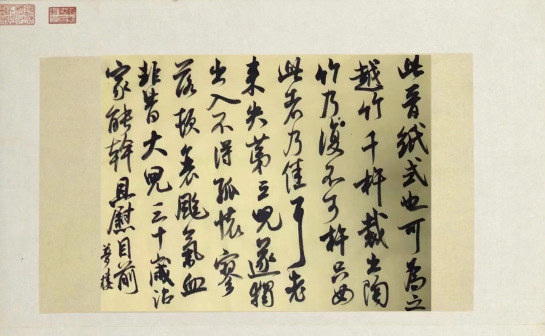 此晉紙式也可為之
越竹千杵裁出陶
竹乃復不可杵只如
此者乃佳耳老
來失第三兒遂獨
出入不得孤懷寥
落頓衰颯氣血
非昔大兒三十歲治
家能幹且慰目前
夢樓